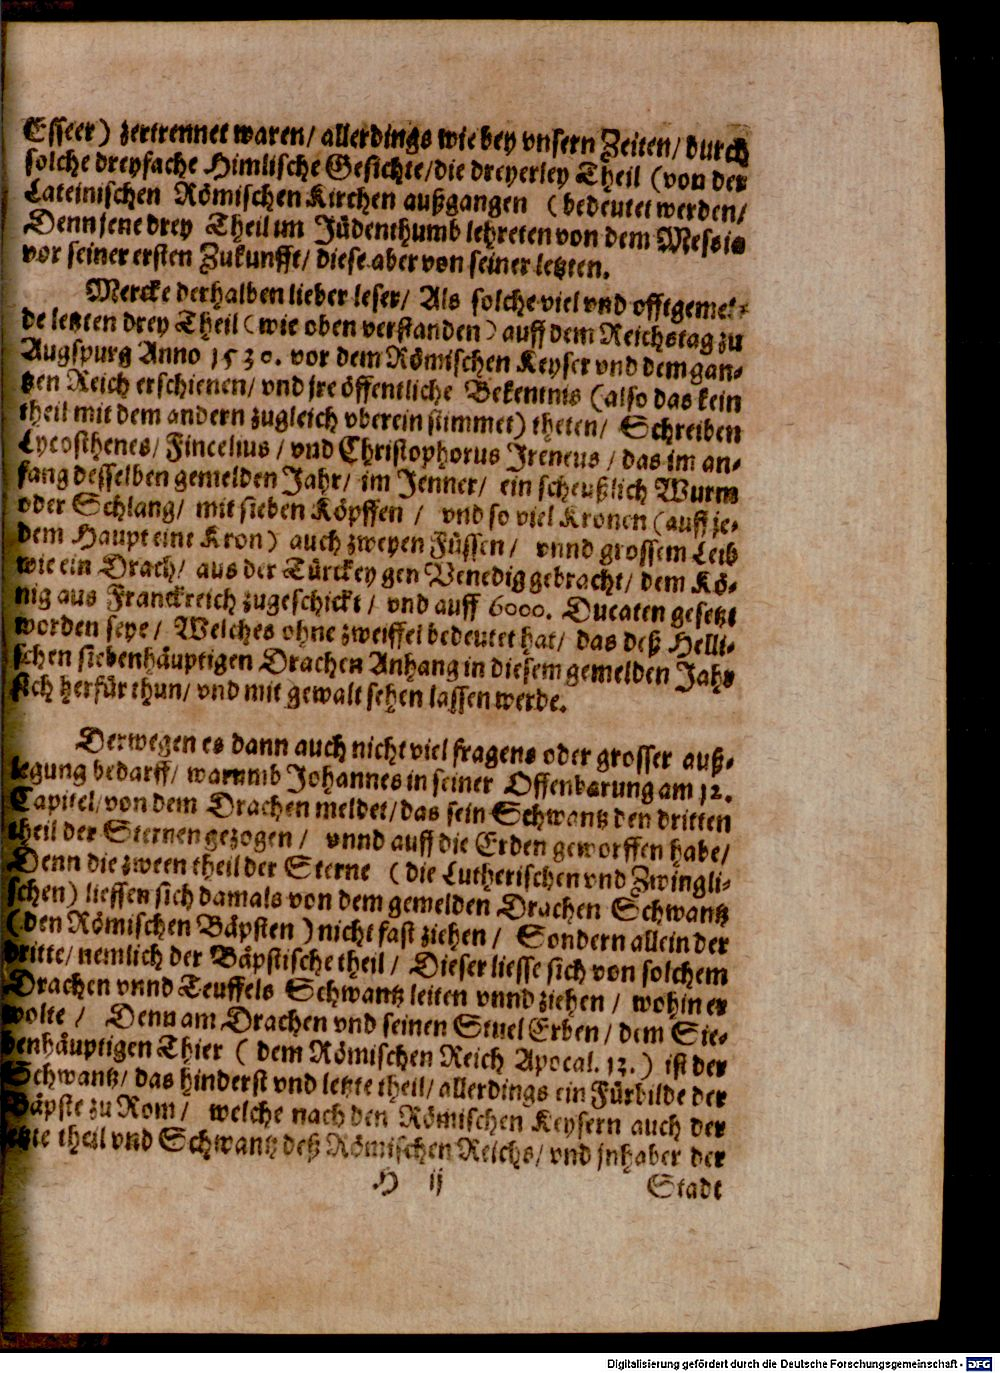 Esseer) zertrennet waren/ allerdings wie bey vnsern Zeiten/ durch
solche dreyfache Himlische Gesichte/ die dreyerley Theil (von der
Lateinischen Römischen Kirchen außgangen (bedeutet werden/
Denn jene drey Theil im Jüdenthumb lehreten von dem Messia
vor seiner ersten Zukunfft/ diese aber von seiner letzten.
Mercke derhalben lieber leser/ Als solche viel vnd offtgemel-
de letzten drey Theil (wie oben verstanden) auff dem Reichstag zu
Augspurg Anno 1530. vor dem Römischen Keyser vnd dem gan-
tzen Reich erschienen/ vnd jre öffentliche Bekentnis (also das kein
theil mit dem andern zugleich vberein stimmet) theten/ Schreiben
Lycosthenes/ Fincelius/ vnd Christophorus Ireneus/ das im an-
fang desselben gemelden Jahr/ im Jenner/ ein scheußlich Wurm
oder Schlang/ mit sieben Köpffen/ vnd so viel Kronen (auff je-
dem Haupt eine Kron) auch zweyen Füssen/ vnnd grossem Leib
wie ein Drach/ aus der Türckey gen Venedig gebracht/ dem Kö-
nig aus Franckreich zugeschickt/ vnd auff 6000. Ducaten gesetzt
worden seye/ Welches ohne zweiffel bedeutet hat/ das deß Helli-
schen siebenhäuptigen Drachen Anhang in diesem gemelden Jahr
sich herfür thun/ vnd mit gewalt sehen lassen werde.
Derwegen es dann auch nicht viel fragens oder grosser auß-
legung bedarff/ warumb Johannes in seiner Offenbarung am 12.
Capitel/ von dem Drachen meldet/ das sein Schwantz den dritten
theil der Sternen gezogen/ vnnd auff die Erden geworffen habe/
Denn die zween theil der Sterne (die Lutherischen vnd Zwingli-
schen) liessen sich damals von dem gemelden Drachen Schwantz
(den Römischen Bäpsten) nicht fast ziehen/ Sondern allein der
dritte/ nemlich der Bäpstische theil/ Dieser liesse sich von solchem
Drachen vnnd Teuffels Schwantz leiten vnnd ziehen/ wohin er
wolte/ Denn am Drachen vnd seinen Stuel Erben/ dem Sie-
benhäuptigen Thier (dem Römischen Reich Apocal. 13.) ist der
Schwantz/ das hinderst vnd letzte theil/ allerdings ein Fürbilde der
Bäpste zu Rom/ welche nach den Römischen Keysern auch der
letzte theil vnd Schwantz deß Römischen Reichs/ vnd jnhaber der
H ij Stadt
Digitalisierung gefördert durch die Deutsche Forschungsgemeinschaft - DFG